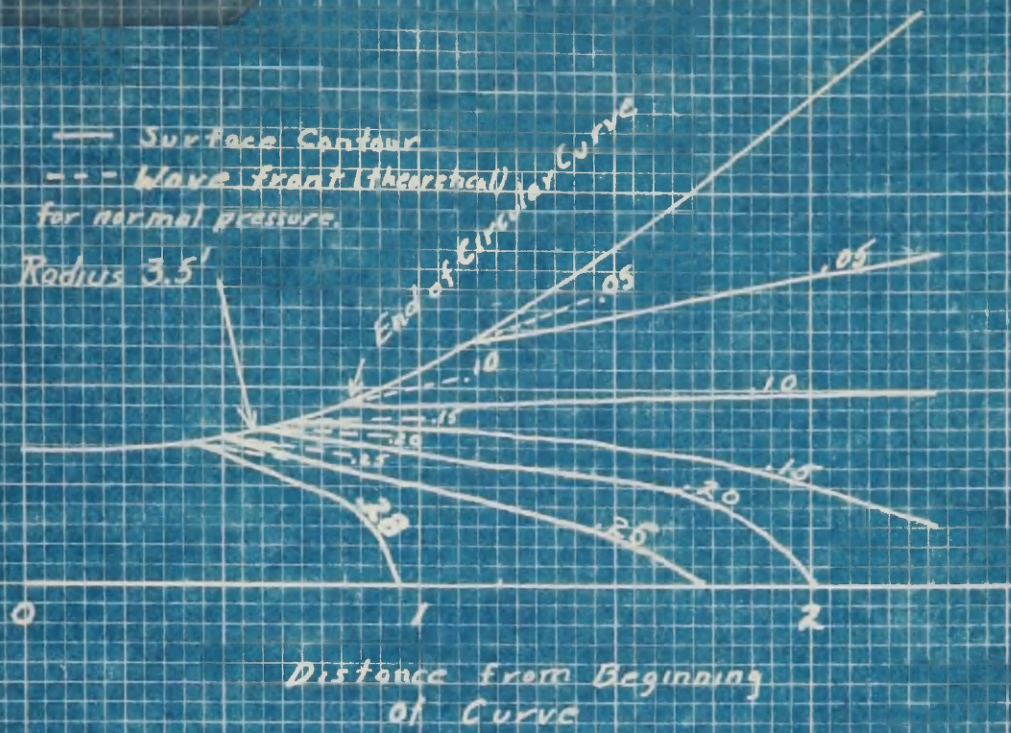 Surface Contour
Wave front (theoretical)
for normal pressure.
Radius 3.5'
End of Circular Curve
.05
.05
.10
.10
.15
.20
.25
.15
.20
.25
.28
0 1 2
Distance from Beginning
of Curve